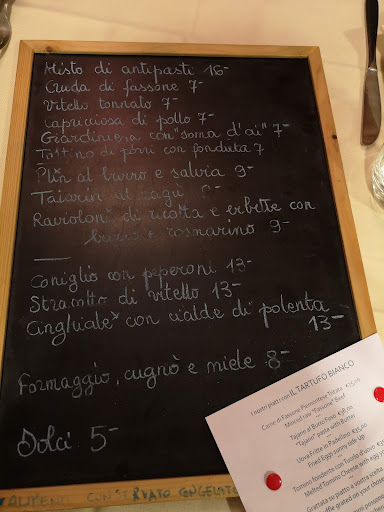 Misto di antipasti 16-
Cruda di fassone 7-
Vitello tonnato 7-
Capricciosa di pollo 7-
Giardiniera con "soma d'ai" 7-
Tortino di porri con fonduta 7
Plin al burro e salvia 9-
Tajarin al ragù 9-
Ravioloni di ricotta e erbette con
burro e rosmarino 9-
Coniglio con peperoni 13-
Stracotto di vitello 13-
Cinghiale* con cialde di polenta
13-
Formaggio, cugnò e miele 8-
Dolci 5-
CONSERVATO CONGELATO
I nostri piatti con IL TARTUFO BIANCO
Carne di Fassone Piemontese Tritata
Minced raw "Fassone" Beef
Tajarin al Burro Fuso €38,00
"Tajarin" pasta with Butter
Uova Fritte in Padellino €35,00
Fried Eggs sunny side up
Tomino fondente con Tuorlo d'uovo
Melted Tomino Cheese with egg
Grattata su piatto a vostra scelta